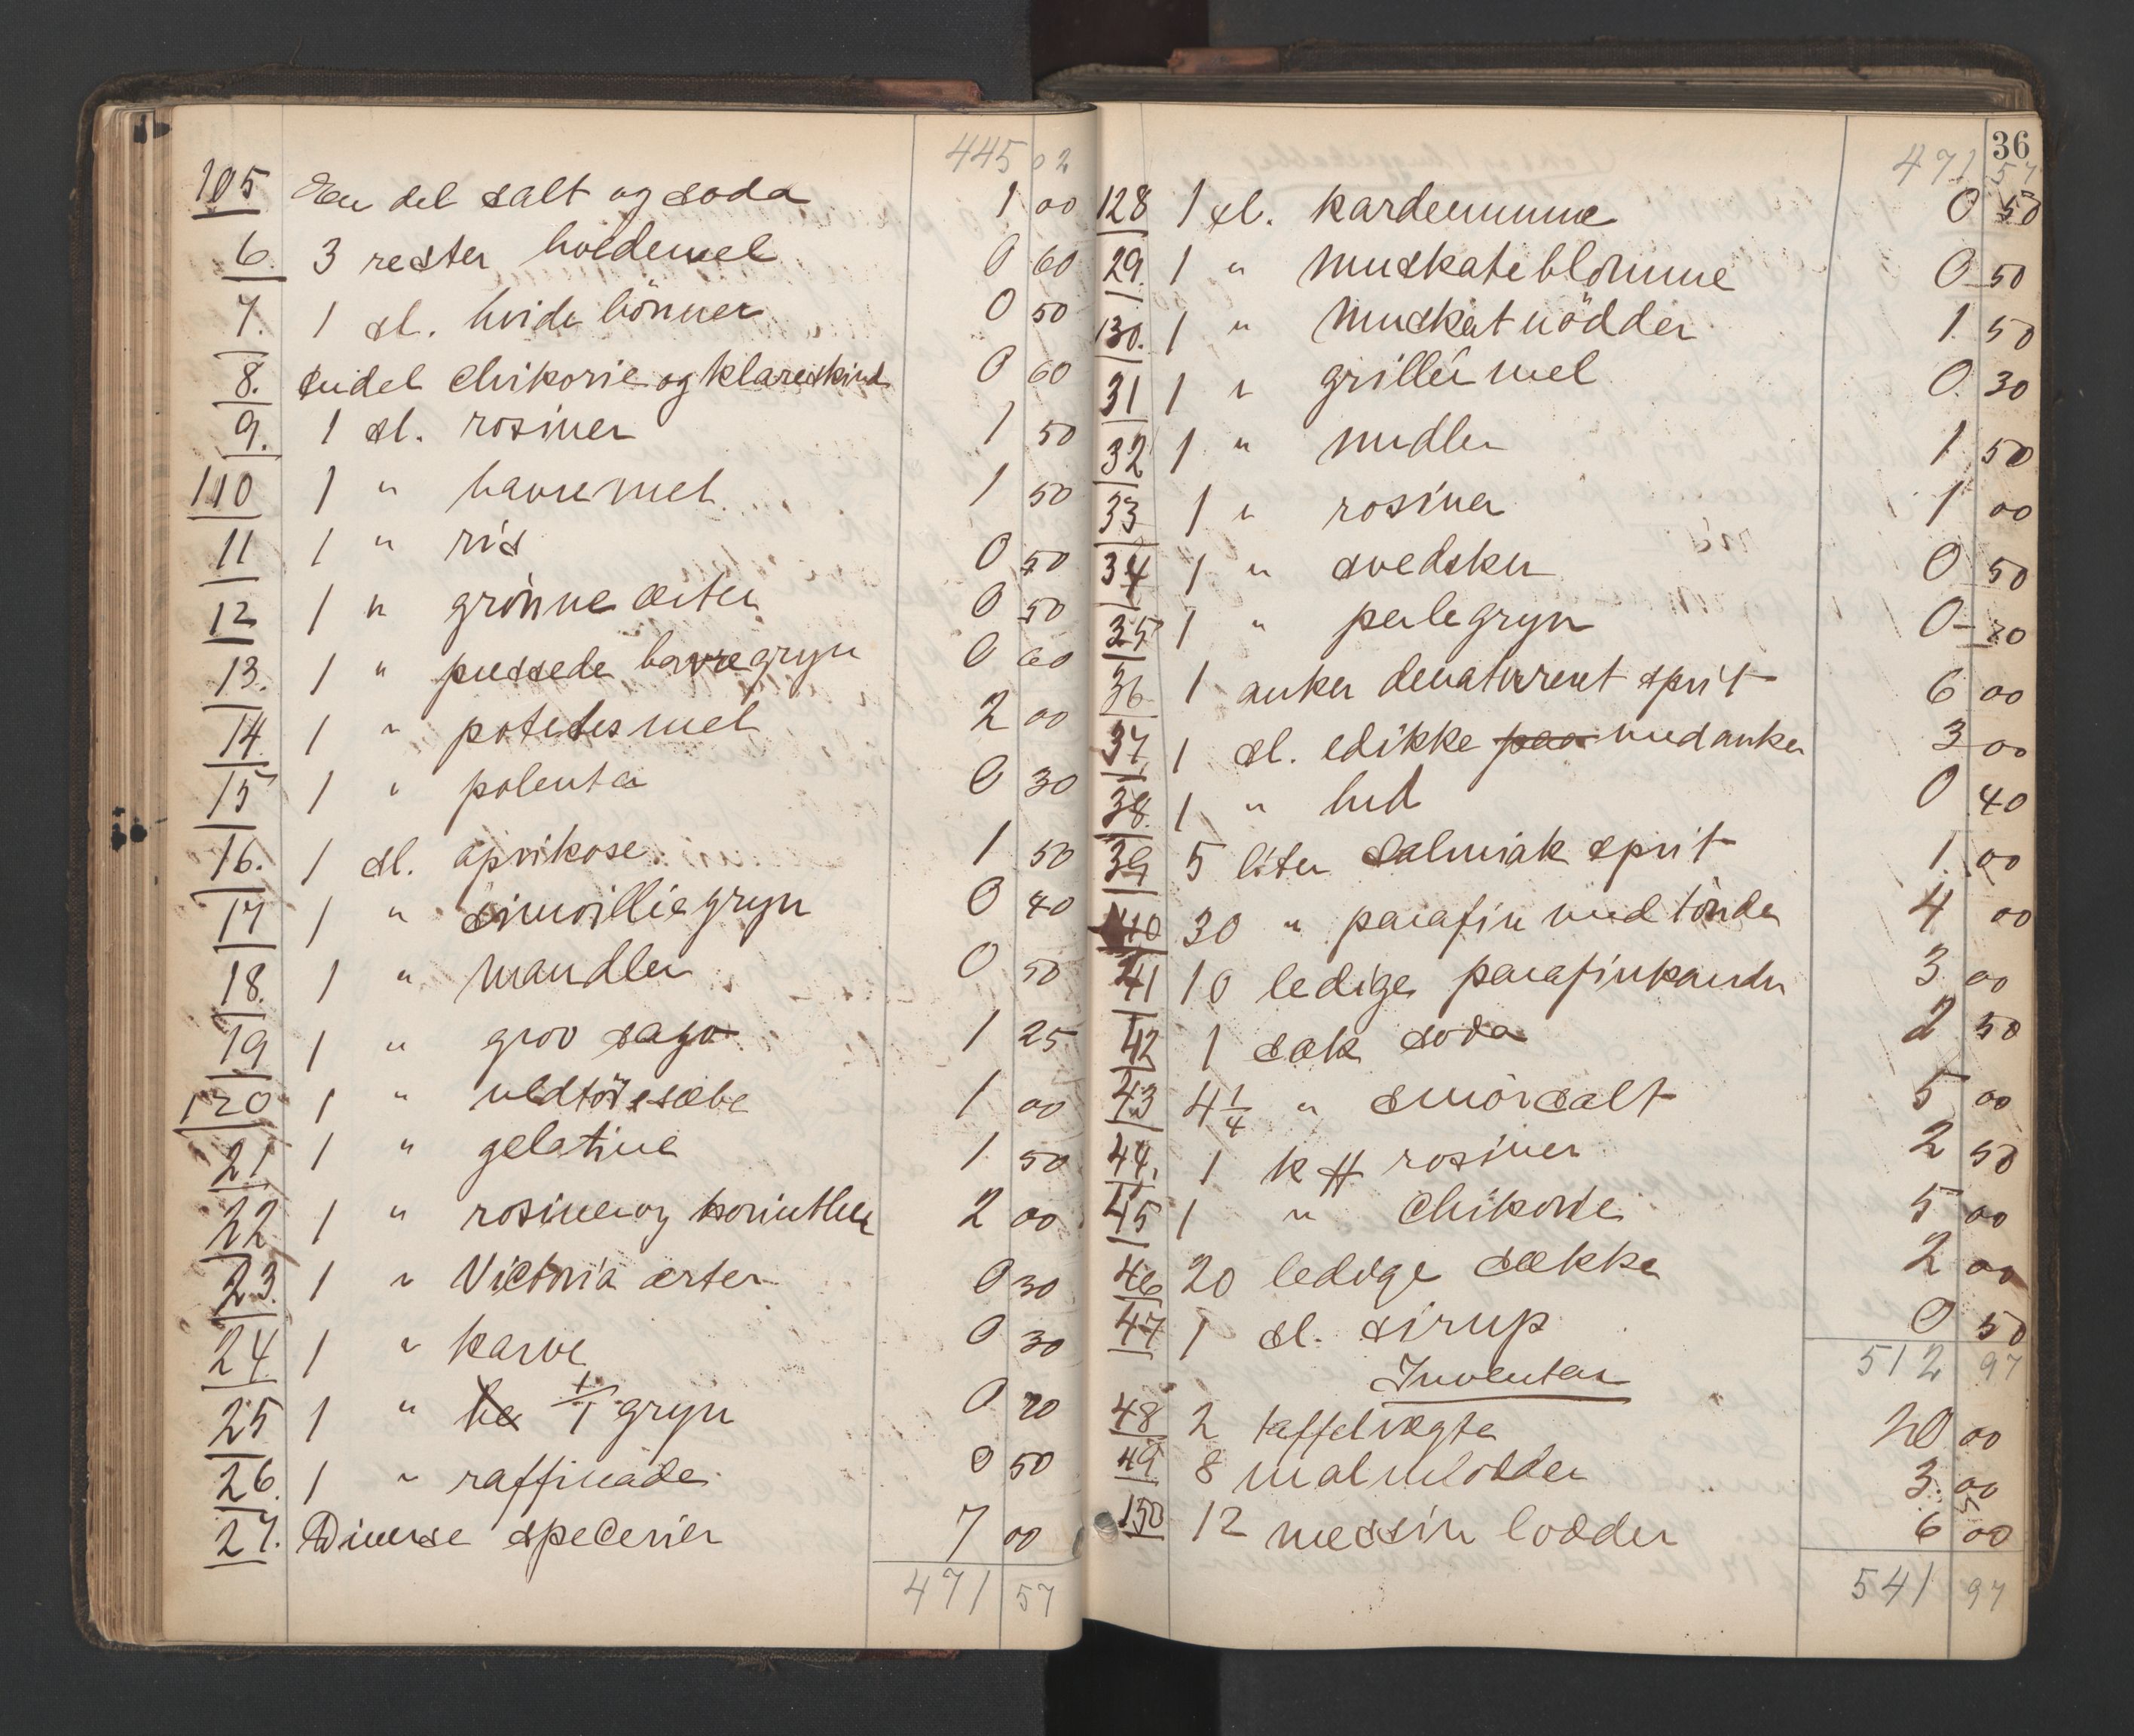 445 02
105 En del salt og soda 1 00
6. 3 rester hvedemel 0 60
7. 1 sl. hvide bönner 0 50
8. Endel chikorie og klareskind 0 60
9. 1 sl. rosiner 1 50
110 1 " havremel 1 50
11 1 " ris 0 50
12 1 " grönne ærter 0 50
13. 1 " pressede havregryn 0 60
14 1 " potetesmel 2 00
15 1 " polenta 0 30
16. 1 sl. aprikose 1 50
17 1 " simoilliegryn 0 40
18. 1 " mandler 0 50
19 1 " grov sago 1 25
120 1 " uldtöisæbe 1 00
21 1 " gelatine 1 50
22 1 " rosiner og korinther 2 00
23. 1 " Victoria ærter 0 30
24. 1 " karve 0 30
25 1 " ha 1/1 gryn 0 20
26. 1 " raffinade 0 50
27. Diverse specerier 7 00
471 57
36
471 57
128 1 sl. kardemumme 0 50
29. 1 " muskateblomme 0 50
130. 1 " muskatnödder 1 50
31 1 " grillér mel 0 30
32 1 " nudler 1 50
33 1 " rosiner 1 00
34 1 " svedsker 0 50
35 1 " perlegryn 0 20
36 1 anker denaturert sprit 6 00
37 1 sl. edikke paa med anker 3 00
38. 1 " lud 0 40
39 5 liter salmiak sprit 1 00
40 30 " parafin med tönde 4 00
41 10 ledige parafinkander 3 00
42 1 sæk soda 2 50
43 4 1/4 " smörsalt 5 00
44. 1 k # rosiner 2 50
45 1 " chikorie 5 00
46 20 ledige sække 2 00
47 1 sl. sirup 0 50
512 97
Inventar
48 2 taffelvægter 20 00
49 8 malmlodder 3 00
150 12 messin lodder 6 00
541 97